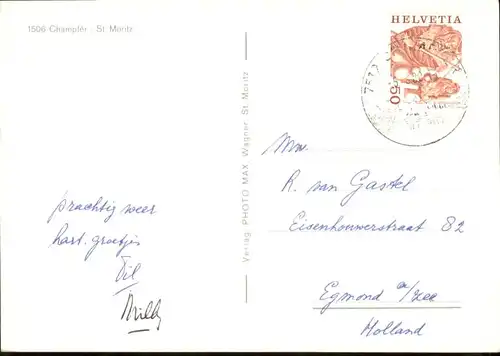 1506 Champfèr / St. Moritz
HELVETIA
50
Verlag PHOTO MAX Wagner St. Moritz
prachtig weer
hart. groetjes
Til
Willy
Mw.
R. van Gastel
Eisenhouwerstraat 82
Egmond a/zee
Holland